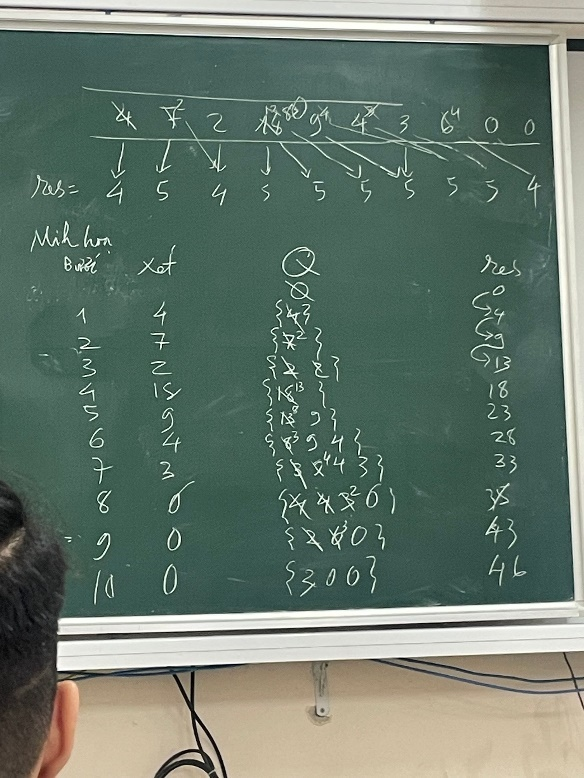 4 7² 2 18 9⁴ 4 3 6⁴ 0 0
res = 4 5 4 5 5 5 5 5 5 4
Minh họa
Bước Xét Q res
∅ 0
1 4 {4} 4
2 7 {7²} 9
3 2 {2 2} 13
4 18 {18¹³} 18
5 9 {13⁸ 9} 23
6 4 {8³ 9 4} 28
7 3 {3 9⁴ 4 3} 33
8 6 {4 4 3² 6} 38
9 0 {2 6³ 0} 43
10 0 {3 0 0} 46